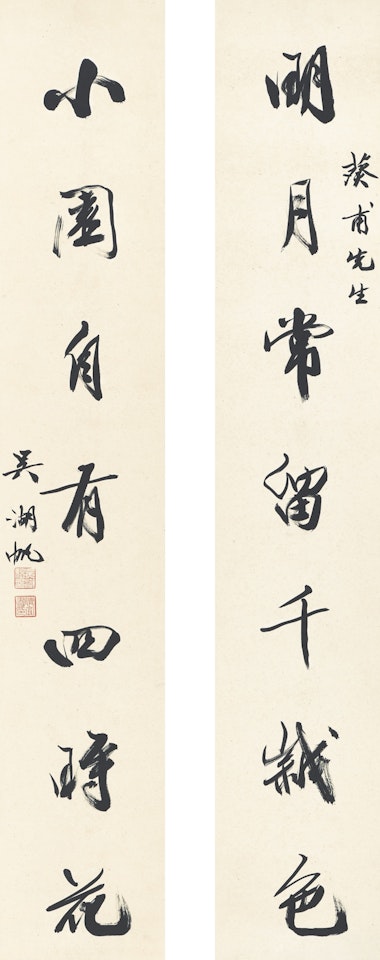 葵甫先生
明月常留千歲色
小園自有四時花
吳湖帆